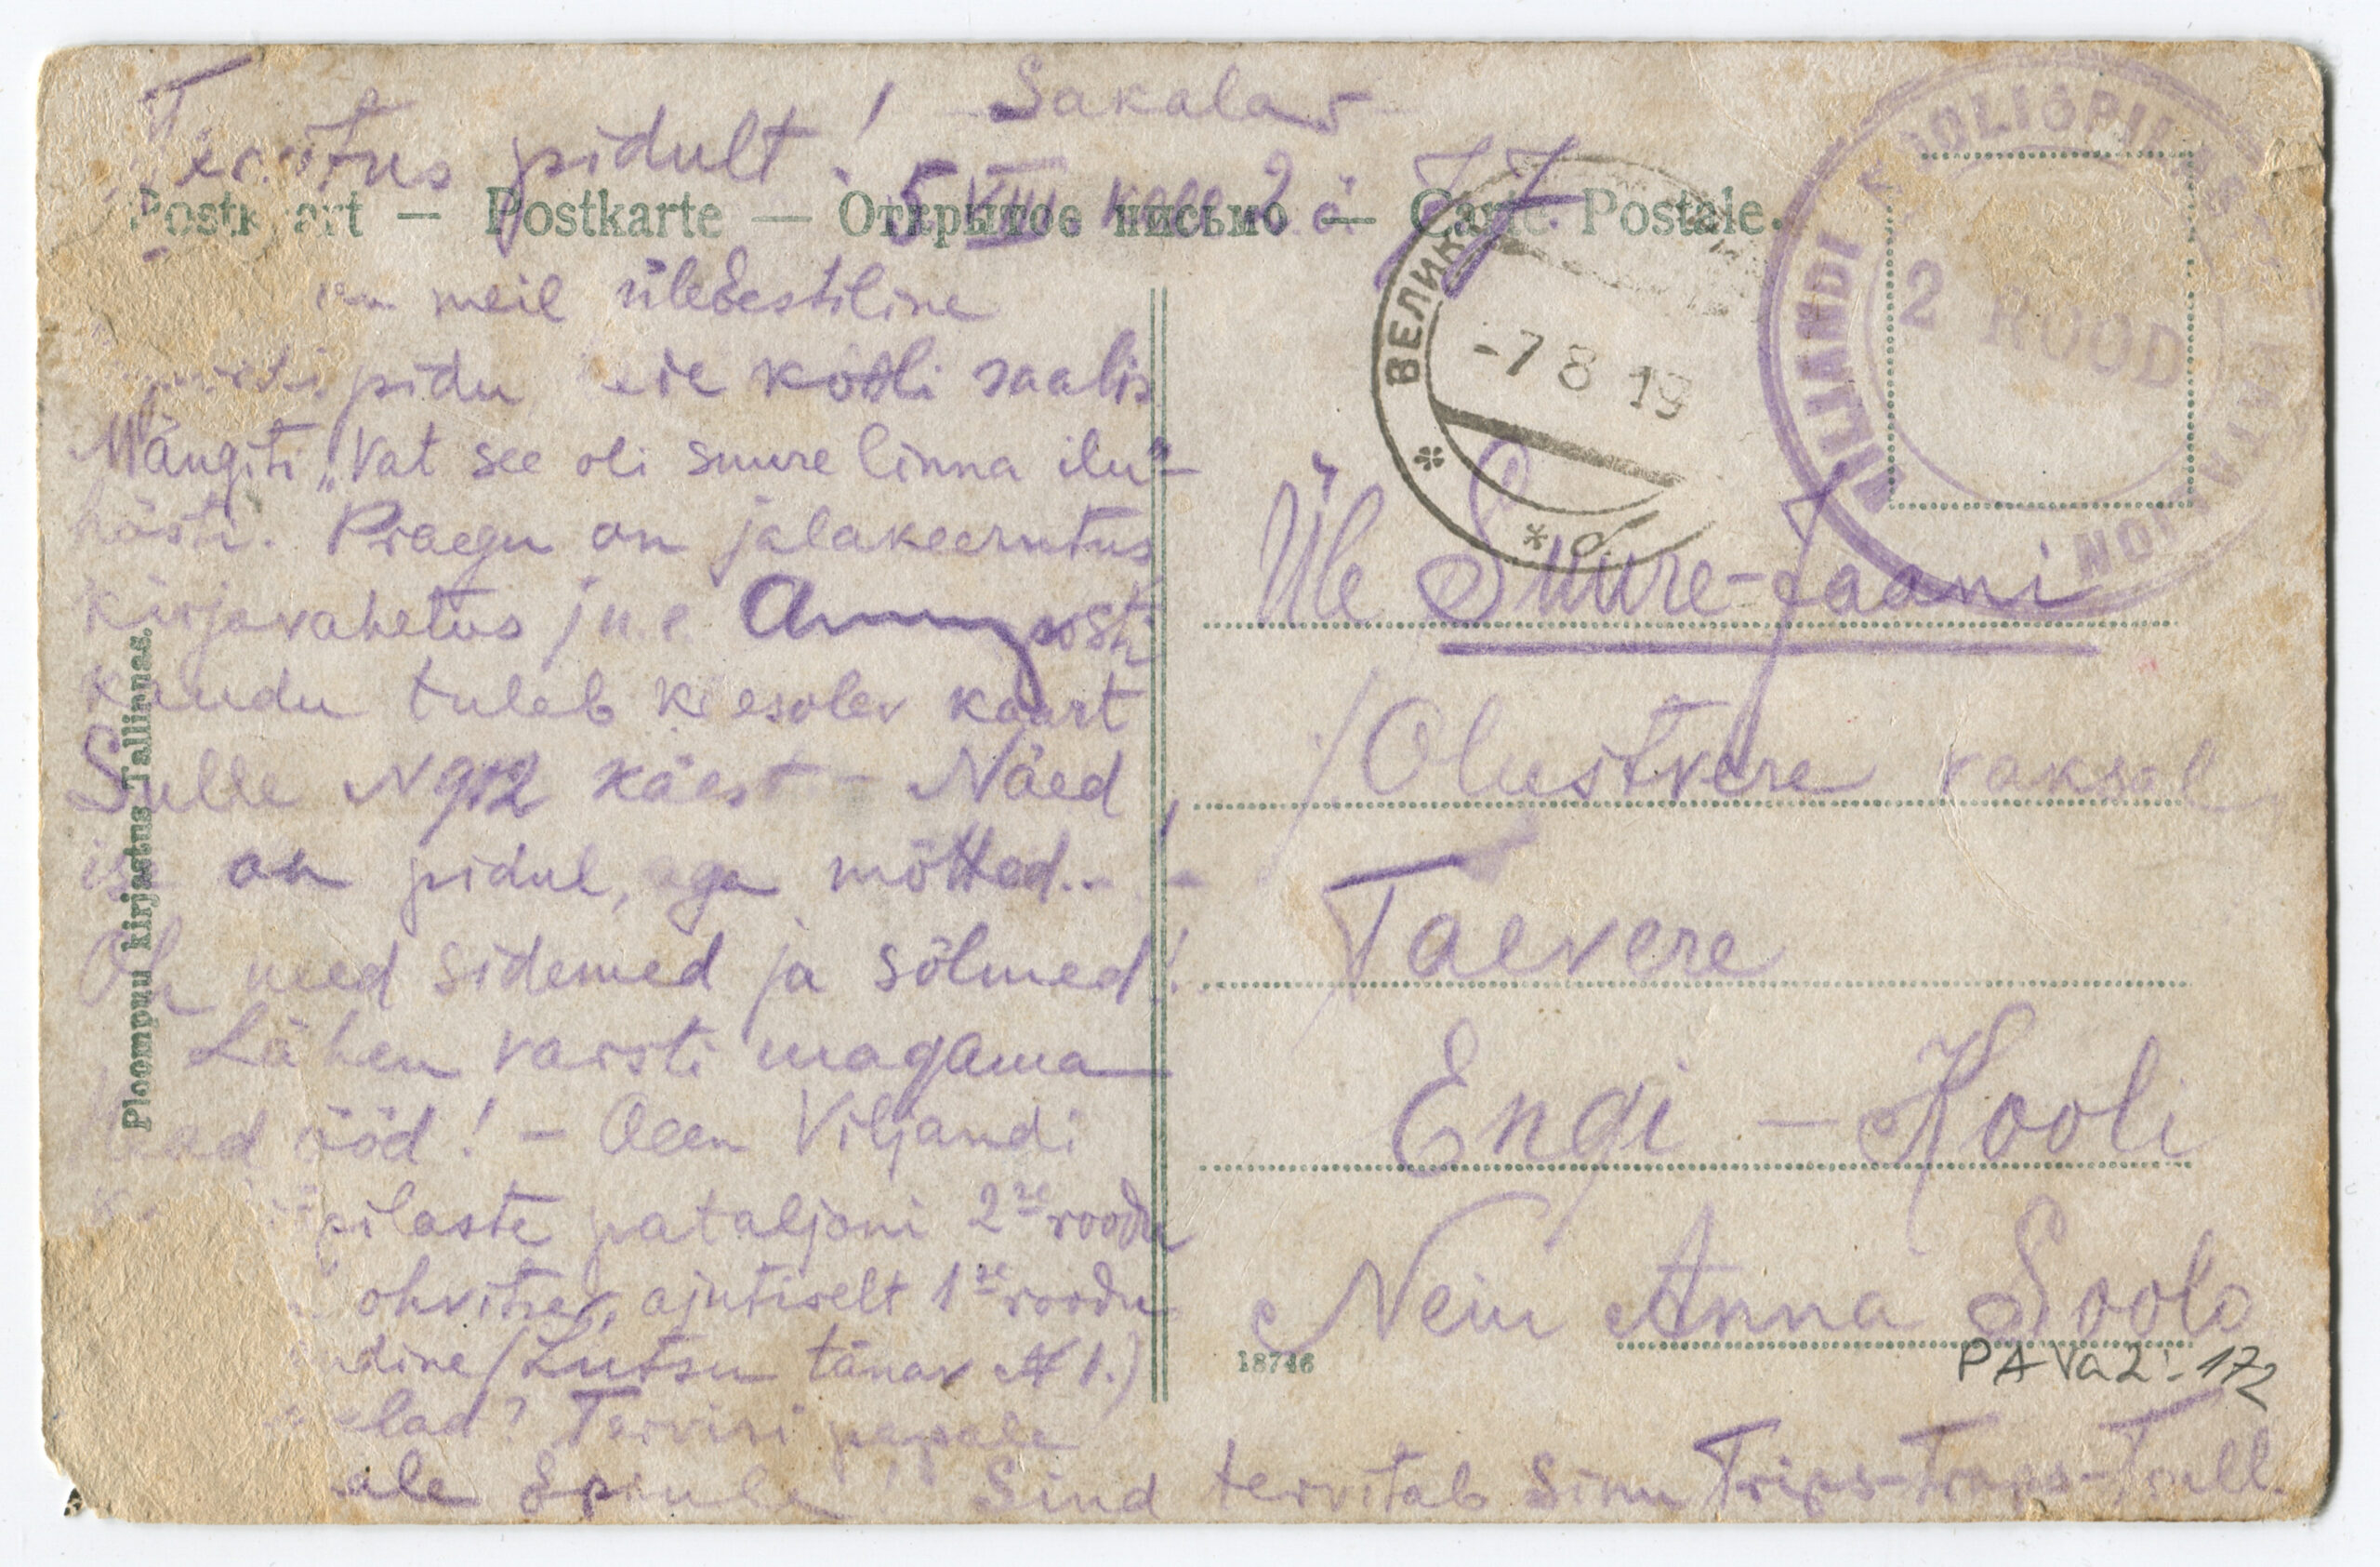 Tervitus pidult! Sakala
5 VIII kell 2 ö
Postkaart — Postkarte — Открытое письмо — Carte Postale.
meil üleestiline
pidu kooli saalis
Mängiti „Vat see oli suure linna ilu“
hästi. Praegu on jalakeerutus
kirjavahetus j.n.e. posti
kaudu tuleb kaart
Sulle N 912 käest — Näed,
ise on pidul, aga mõtted...
Oh need sidemed ja sõlmed!
Lähen varsti magama
Head ööd! — Olen Viljandi
pilaste pataljoni 2se roodu
ohvitser, ajutiselt 1se roodu
(Lutsu tänav № 1.)
elad? Tervisi papale
Sind tervitab Sinu Trips-Traps-Trull.
Ploompuu kirjastus Tallinnas.
ВЕЛИК
-7 8 19
VILJANDI KOOLIÕPILASTE PATALJON
2 ROOD
Üle Suure-Jaani
/Olustvere vaksal
Taevere
Engi - Kooli
Neiu Anna Soots
18746
PA Va 2: 172